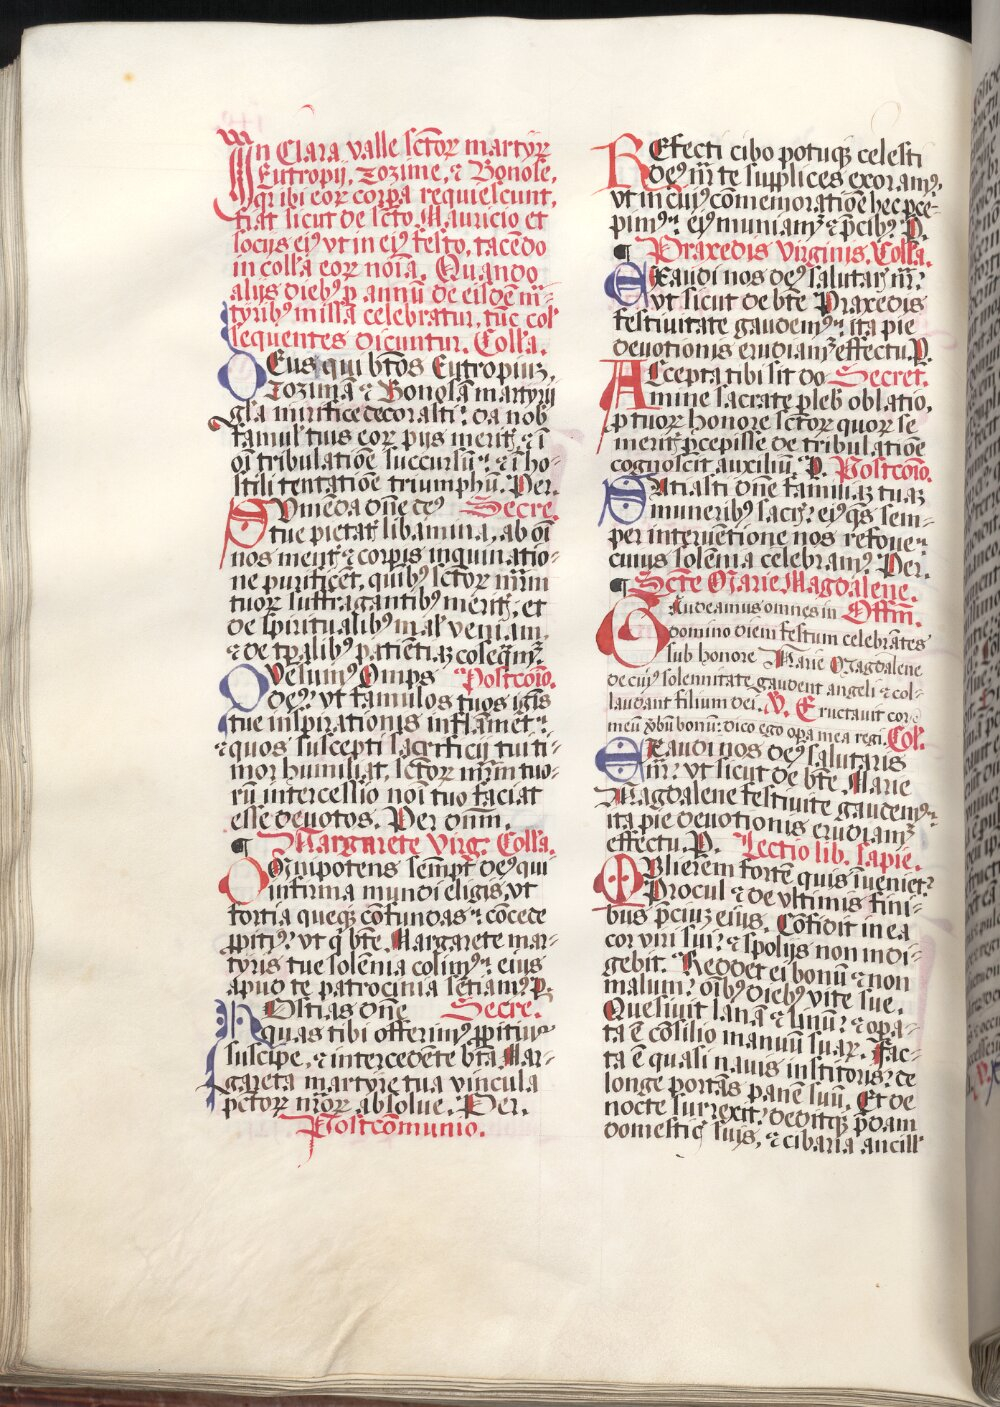 In Clara valle sctoꝝ martyꝝ
Eutropij, Zozime, ⁊ Bonose,
qꝛ ibi eoꝝ corpa requiescunt,
fiat sicut de scto Mauricio et
socijs eiꝰ vt in eiꝰ festo, tacēdo
in coll'a eoꝝ noīa. Quando
alijs diebꝰ p annū de eisdē m̄-
tyribꝰ missa celebratur, tūc col'
sequentes dicuntur. Coll'a.
DEus qui btōs Eutropiuꝫ,
Zozimā ⁊ Bonosā martyrij
gl'a mirifice decorasti: da nob'
famul' tuis eoꝝ pijs merit̄ꝭ ⁊ ī
oī tribulatiōe succursū: ⁊ ī ho-
stili tentatiōe triumphū. Per.
SVmēda dn̄e deꝰ Secre.
tue pietat̄ꝭ libamina, ab oī
nos ment̄ꝭ ⁊ corpis inquinatio-
ne purificēt, quibꝰ sctoꝝ mr̄m
tuoꝝ suffragantibꝰ merit̄ꝭ, et
de spiritualibꝰ mal' veniam,
⁊ de tpalibꝰ patientiaꝫ coseqm̄ꝰ.
QVesumꝰ omps Postcōio.
deꝰ: vt famulos tuos igis
tue inspirationis inflāmet:
⁊ quos suscepti sacrificij tui ti-
mor humiliat, sctoꝝ mr̄m tuo-
rū intercessio noī tuo faciat
esse deuotos. Per dnm̄.
¶ Margarete virg: Coll'a.
OMnipotens sempt deꝰ qui
infirma mundi eligis, vt
fortia queqꝫ cōfundas: cōcede
ꝓpitiꝰ: vt q bte Margarete mar-
tyris tue solēnia colimꝰ: eius
apud te patrocinia sētiamꝰ. P.
HOstias dn̄e Secre.
quas tibi offerimꝰ ꝓpitiꝰ
suscipe, ⁊ intercedēte btā Mar-
gareta martyre tua vincula
pctoꝝ nr̄oꝝ absolue. Per.
Postcōmunio.
REfecti cibo potuqꝫ celesti
deꝰ nr̄ te supplices exoramꝰ,
vt in cuiꝰ cōmemoratiōe hec pce-
pimꝰ: eiꝰ muniamꝰ ⁊ pcibꝰ. P.
¶ Praxedis virginis. Coll'a.
EXaudi nos deꝰ salutar̄ꝭ nr̄:
vt sicut de bte Praxedis
festiuitate gaudemꝰ: ita pie
deuotionis erudiamꝰ effectu. P.
ACcepta tibi sit do- Secret.
mine sacrate pleb' oblatio,
p tuoꝝ honore sctoꝝ quoꝝ se
merit̄ꝭ pcepisse de tribulatiōe
cognoscit auxiliū. P. Postcōio.
SAtiasti dn̄e familiaꝫ tuaꝫ
muneribꝰ sacr̄ꝭ: eiꝰ qs sem-
per interuentione nos refoue:
cuius solēnia celebramꝰ. Per.
¶ Scte Marie Magdalene.
GAudeamus omnes in Offm̄.
domino diem festum celebrātes
sub honore Marie Magdalene
de cuiꝰ solennitate gaudent angeli ⁊ col-
laudant filium dei. V. Eructauit cor
meū ꝟbū bonū: dico ego opa mea regi. Col'.
EXaudi nos deꝰ salutaris
nr̄: vt sicut de bte Marie
Magdalene festiuite gaudemꝰ:
ita pie deuotionis erudiamꝰ
effectu. P. Lectio lib. sapie.
MVlierem fortē quis īueniet?
Procul ⁊ de vltimis fini-
bus pciuꝫ eius. Cōfidit in ea
cor viri sui: ⁊ spolijs non indi-
gebit. Reddet ei bonū ⁊ non
malum: oībꝰ diebꝰ vite sue.
Quesiuit lanā ⁊ linū: ⁊ opa-
ta ē cōsilio manuū suaꝝ. Fac-
ta ē quasi nauis institoris: de
longe portās panē suū. Et de
nocte surrexit: deditqꝫ pdam
domestic̄ꝭ suis, ⁊ cibaria ancill'